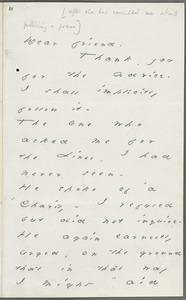 [after she has consulted me about
publishing a poem]
Dear friend.
Thank you
for the advice.
I shall implicitly
follow it.
The One who
asked me for
the Lines, I had
never seen.
He spoke of "a
Charity." I refused
but did not inquire.
He again earnestly
urged, on the ground
that in that way
I might "aid